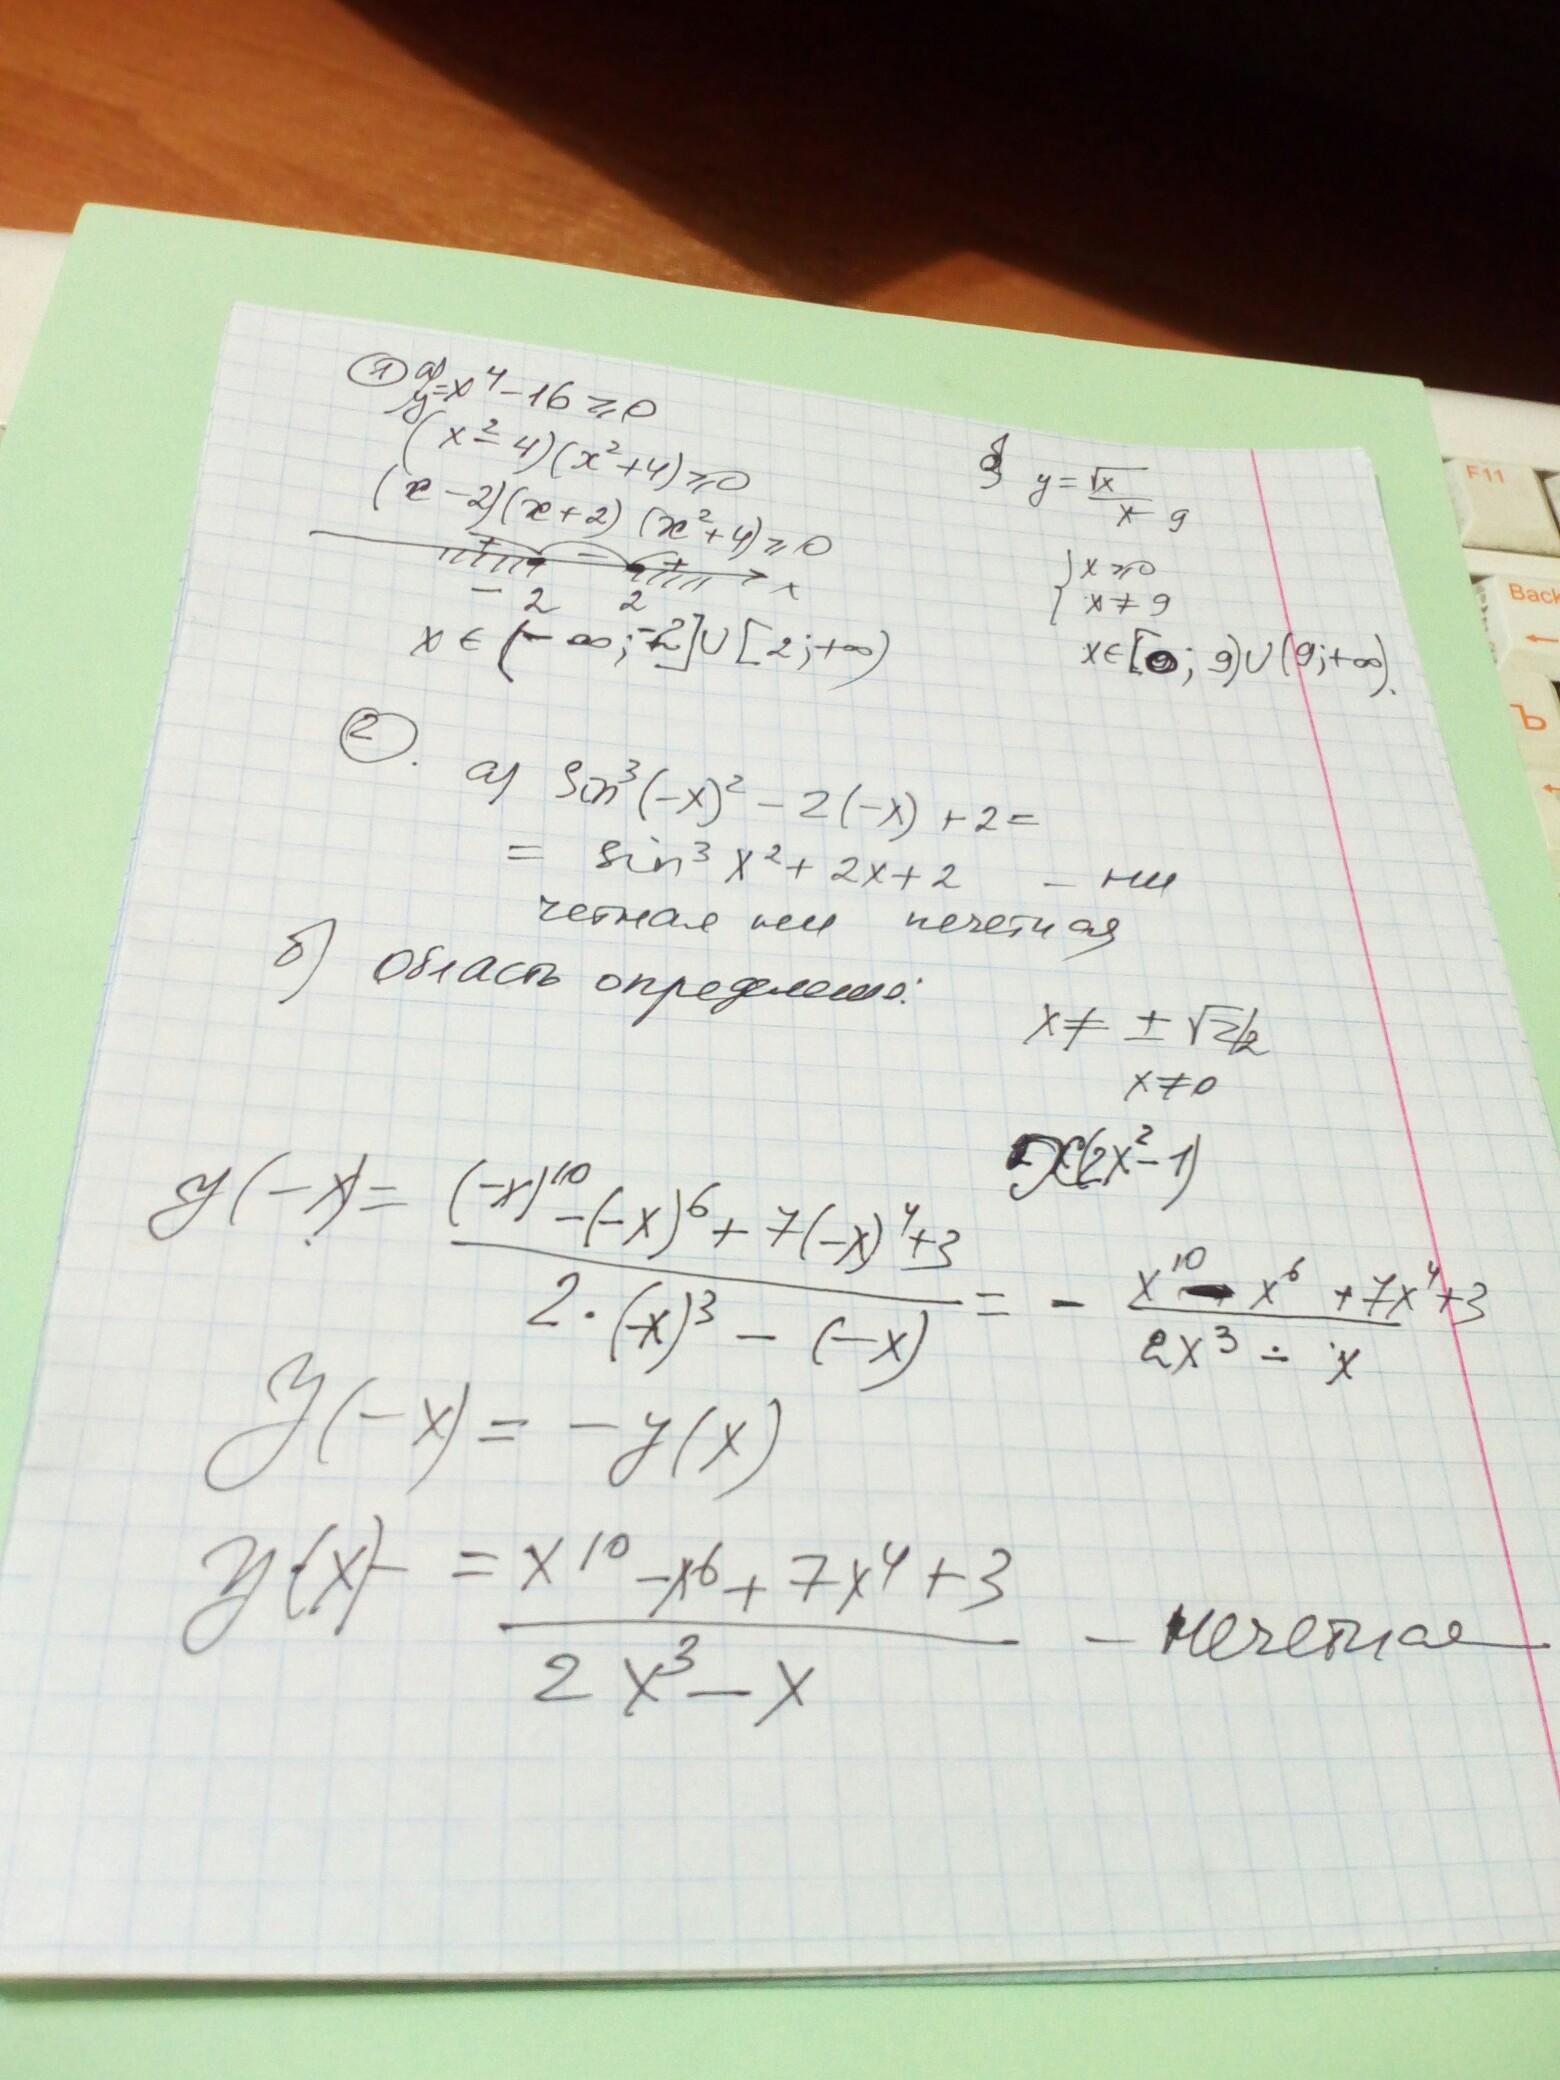 1 а) y=x⁴-16⩾0
(x²-4)(x²+4)⩾0
(x-2)(x+2)(x²+4)⩾0
+ - + x
-2 2
x∈(-∞;-2]∪[2;+∞)
y=√x/(x-9)
{x⩾0
x≠9
x∈[0;9)∪(9;+∞).
2. а) sin³(-x)²-2(-x)+2=
= sin³x²+2x+2 - ни
четная ни нечетная
б) Область определения:
x≠±√2/2
x≠0
x(2x²-1)
y(-x)=((-x)¹⁰-(-x)⁶+7(-x)⁴+3)/(2·(-x)³-(-x))=-(x¹⁰-x⁶+7x⁴+3)/(2x³-x)
y(-x)=-y(x)
y(x)=(x¹⁰-x⁶+7x⁴+3)/(2x³-x) - нечетная
F11
Back
←
Ъ